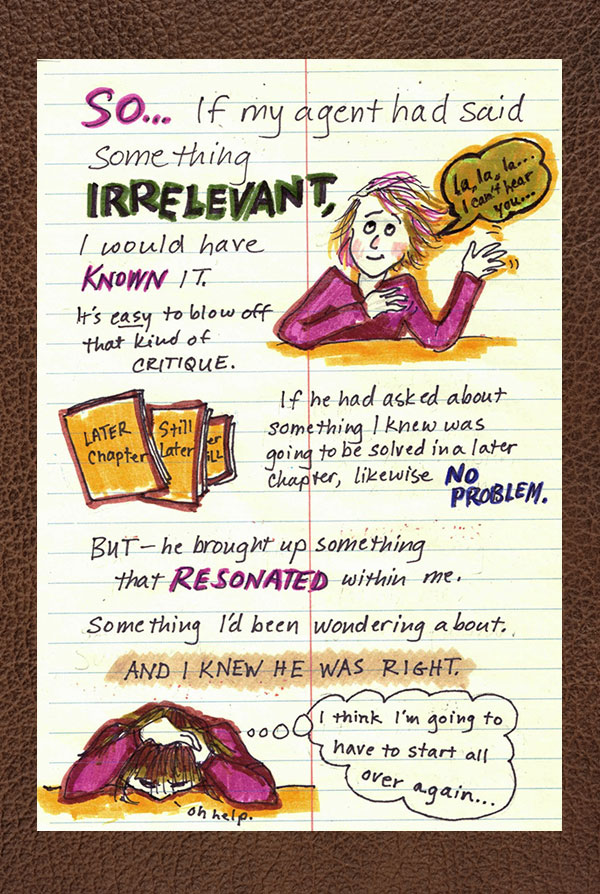 SO... If my agent had said
something
IRRELEVANT,
I would have
KNOWN IT.
It's easy to blow off
that kind of
CRITIQUE.
La, la, la...
I can't hear
you...
LATER
Chapter
Still
Later
er
ILL
If he had asked about
something I knew was
going to be solved in a later
chapter, likewise NO
PROBLEM.
BUT – he brought up something
that RESONATED within me.
Something I'd been wondering about.
AND I KNEW HE WAS RIGHT.
I think I'm going to
have to start all
over again...
oh help.